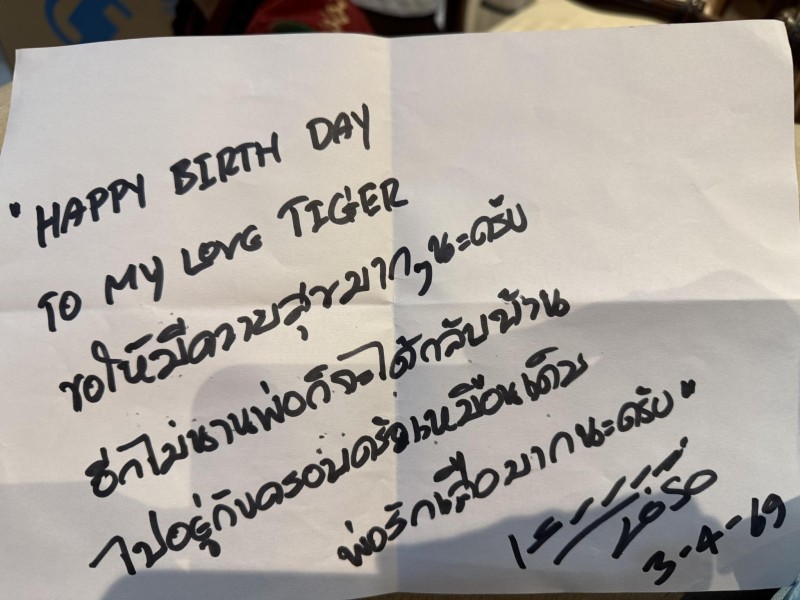 "HAPPY BIRTH DAY
TO MY LOVE TIGER
ขอให้มีความสุขมากๆนะครับ
อีกไม่นานพ่อก็จะได้กลับบ้าน
ไปอยู่กับครอบครัวเหมือนเดิม
พ่อรักเสือมากนะครับ"
3-4-69